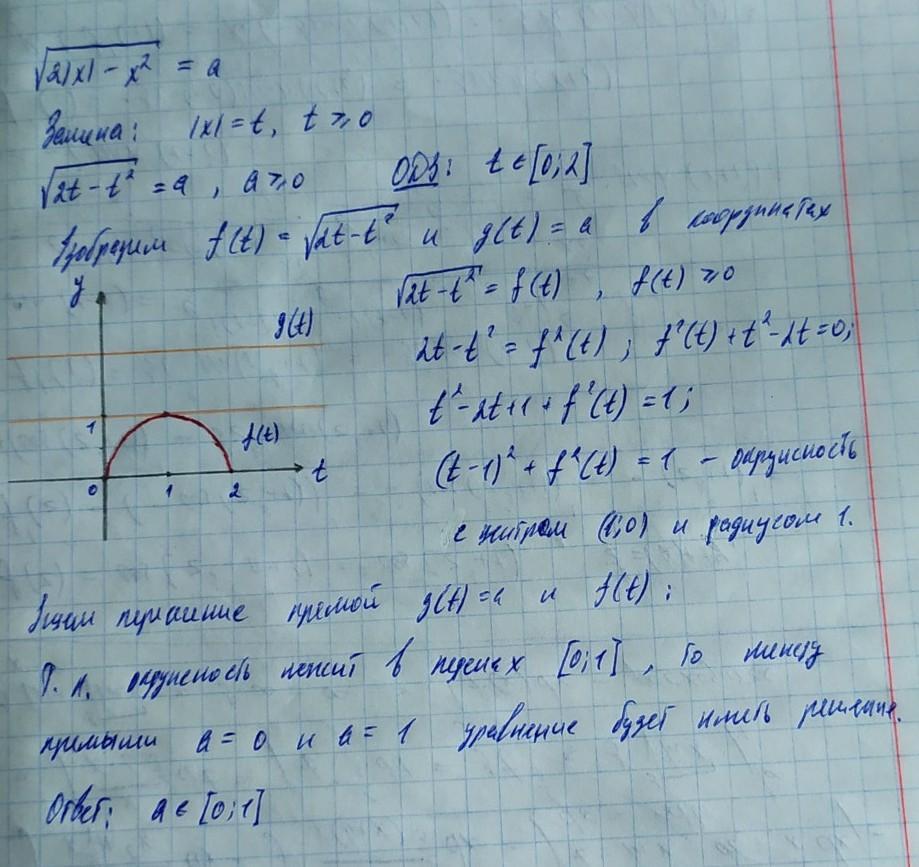 √2|x| - x² = a
Замена: |x| = t, t ⩾ 0
√2t - t² = a , a ⩾ 0 ОДЗ: t ∈ [0; 2]
Изобразим f(t) = √2t - t² и g(t) = a в координатах
√2t - t² = f(t) , f(t) ⩾ 0
2t - t² = f²(t) ; f²(t) + t² - 2t = 0;
t² - 2t + 1 + f²(t) = 1;
(t - 1)² + f²(t) = 1 - окружность
с центром (1; 0) и радиусом 1.
y
g(t)
1
f(t)
0 1 2 t
Ищем пересечение прямой g(t) = a и f(t) :
Т. к. окружность лежит в пределах [0; 1] , то между
прямыми a = 0 и a = 1 уравнение будет иметь решение.
Ответ: a ∈ [0; 1]